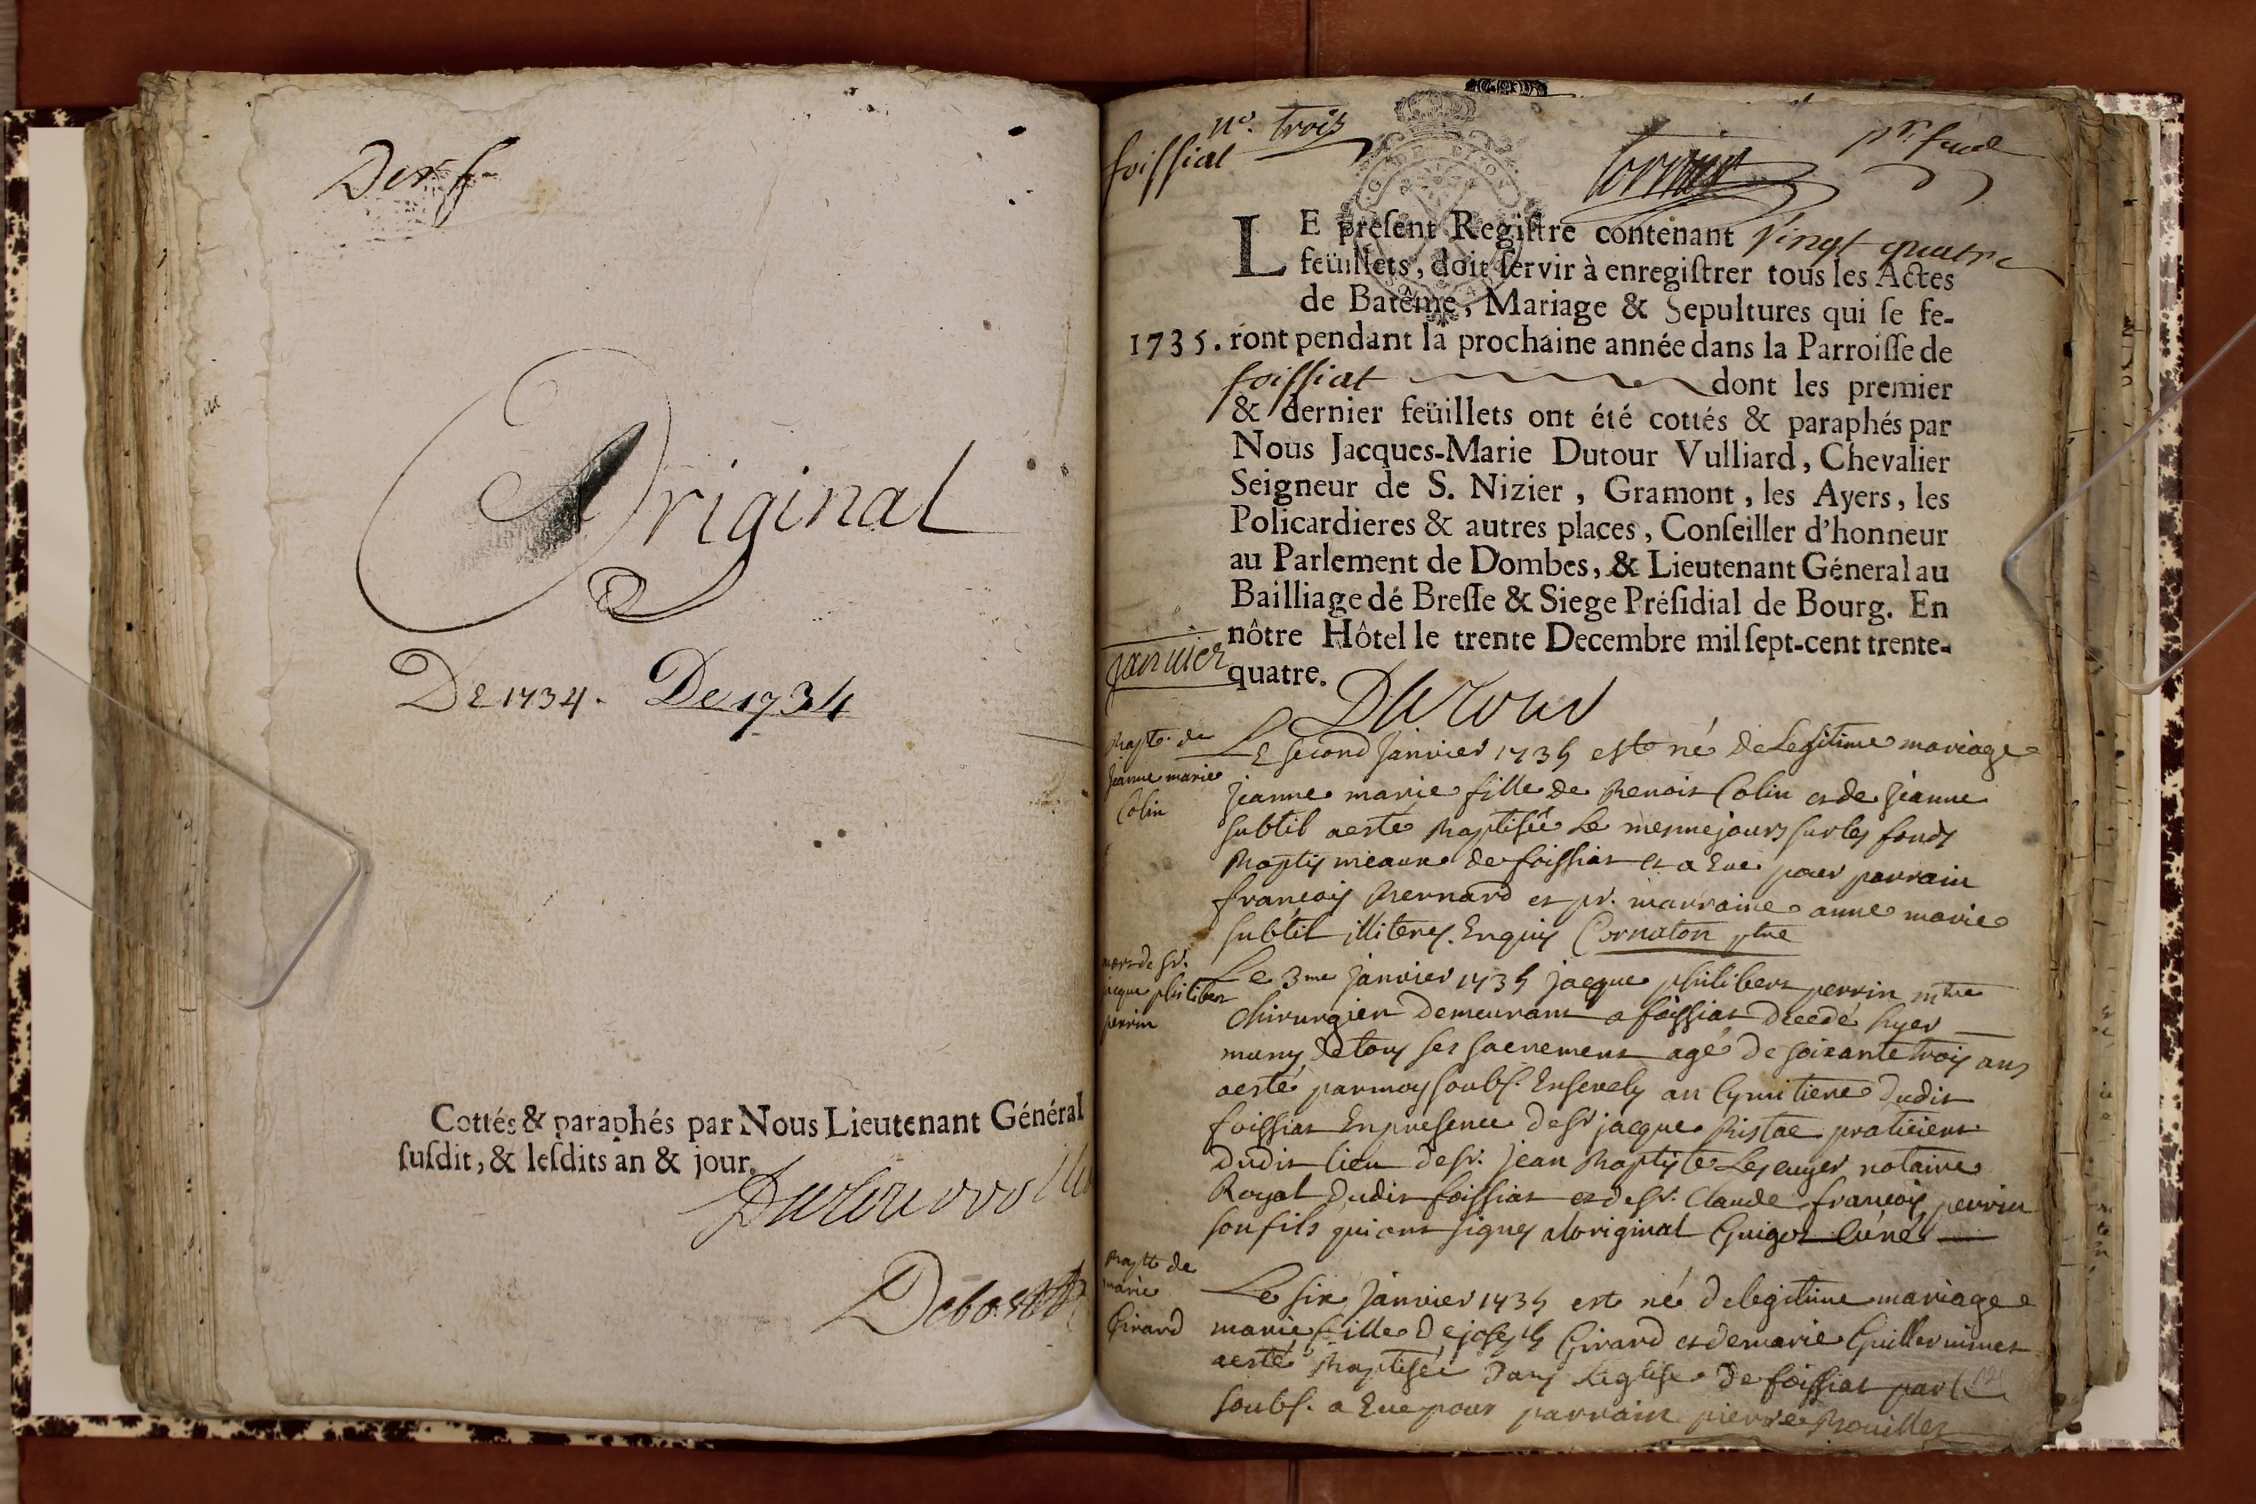 Original
De 1734. De 1734
Cottés & paraphés par Nous Lieutenant Général
suſdit, & leſdits an & jour.
nº. trois
foissiat
LE preſent Regiſtre contenant vingt quatre
feüillets, doit ſervir à enregiſtrer tous les Actes
de Batême, Mariage & Sepultures qui ſe fe-
1735. ront pendant la prochaine année dans la Parroiſſe de
foissiat dont les premier
& dernier feüillets ont été cottés & paraphés par
Nous Jacques-Marie Dutour Vulliard, Chevalier
Seigneur de S. Nizier, Gramont, les Ayers, les
Policardieres & autres places, Conſeiller d'honneur
au Parlement de Dombes, & Lieutenant Géneral au
Bailliage dé Breſſe & Siege Préſidial de Bourg. En
nôtre Hôtel le trente Decembre mil ſept-cent trente-
quatre.
Dutour
janvier
Bapte. de
jeanne marie
Colin
Le second janvier 1735 est né de Legitime mariage
jeanne marie fille de Benoit Colin et de jeanne
subtil aesté Baptisée Le mesme jours sur les fonds
Baptismeaux de foissiat et a Eue pour parrain
françois Bernard et pr. marraine anne marie
subtil illiterés. Enquis Cornaton ptre
mort de Sr.
jacque philibert
perrin
Le 3me janvier 1735 jacque philibert perrin mtre
chirurgien demeurant a foissiat decedé hyer
muny de tous ses sacrement agé de soixante trois ans
aesté par moy soubs. Ensevely au Cymitiere dudit
foissiat En presence de Sr jacque Pistac praticient
dudit lieu de Sr. jean Baptiste Lescuyer notaire
Royal dudit foissiat et de Sr. Claude françois perrin
son fils qui ont signés aloriginal Guigot Curé
Baptt de
marie
Girard
Le six janvier 1735 est né delegitime mariage
marie fille de joseph Girard et de marie Guillerminet
aesté Baptisée dans Leglise de foissiat par
soubs. a Eue pour parrain pierre Bouillet